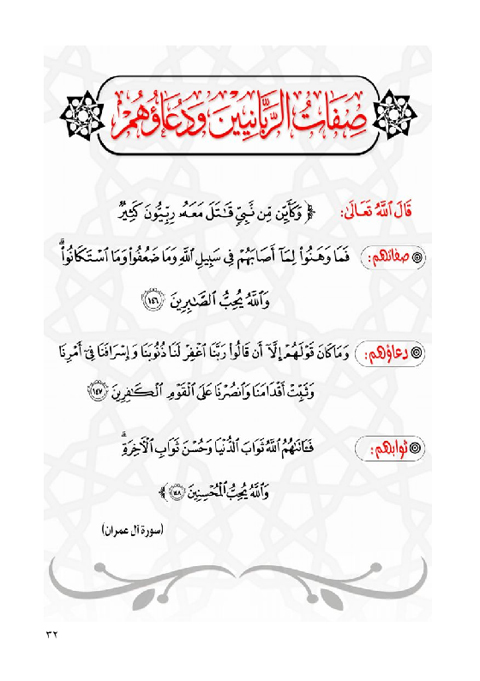 صِفَاتُ الرَّبَّانِيِّينَ وَدُعَاؤُهُمْ
قَالَ اللَّهُ تَعَالَى: ﴿ وَكَأَيِّن مِّن نَّبِيٍّ قَٰتَلَ مَعَهُۥ رِبِّيُّونَ كَثِيرٌ
صفاتهم: فَمَا وَهَنُوا۟ لِمَآ أَصَابَهُمْ فِى سَبِيلِ ٱللَّهِ وَمَا ضَعُفُوا۟ وَمَا ٱسْتَكَانُوا۟ ۗ
وَٱللَّهُ يُحِبُّ ٱلصَّٰبِرِينَ ١٤٦
دعاؤهم: وَمَا كَانَ قَوْلَهُمْ إِلَّآ أَن قَالُوا۟ رَبَّنَا ٱغْفِرْ لَنَا ذُنُوبَنَا وَإِسْرَافَنَا فِىٓ أَمْرِنَا
وَثَبِّتْ أَقْدَامَنَا وَٱنصُرْنَا عَلَى ٱلْقَوْمِ ٱلْكَٰفِرِينَ ١٤٧
ثوابهم: فَـَٔاتَىٰهُمُ ٱللَّهُ ثَوَابَ ٱلدُّنْيَا وَحُسْنَ ثَوَابِ ٱلْـَٔاخِرَةِ ۗ
وَٱللَّهُ يُحِبُّ ٱلْمُحْسِنِينَ ١٤٨ ﴾
(سورة آل عمران)
٣٢